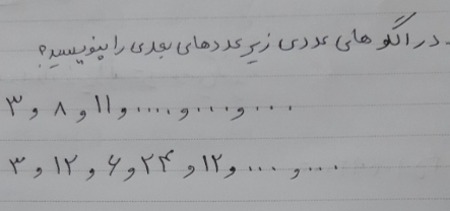 . در الگو های عددی زیر عددهای بعدی را بنویسید؟
۳ و ۸ و ۱۱ و .... و .... و ....
۳ و ۱۲ و ۶ و ۲۴ و ۱۲ و .... و ....